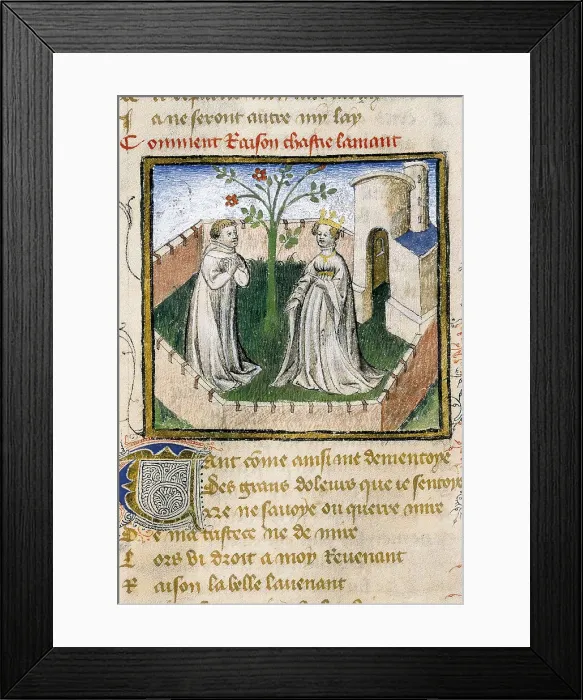 I a ne seront autre my lay
Comment Raison chastie lamant
Tant come ainsi me dementoye
Des grans doleurs que ie sentoye
ne savoye ou querre mire
De ma tristece ne de mire
Lors vi droit a moy Revenant
Raison la belle lavenant